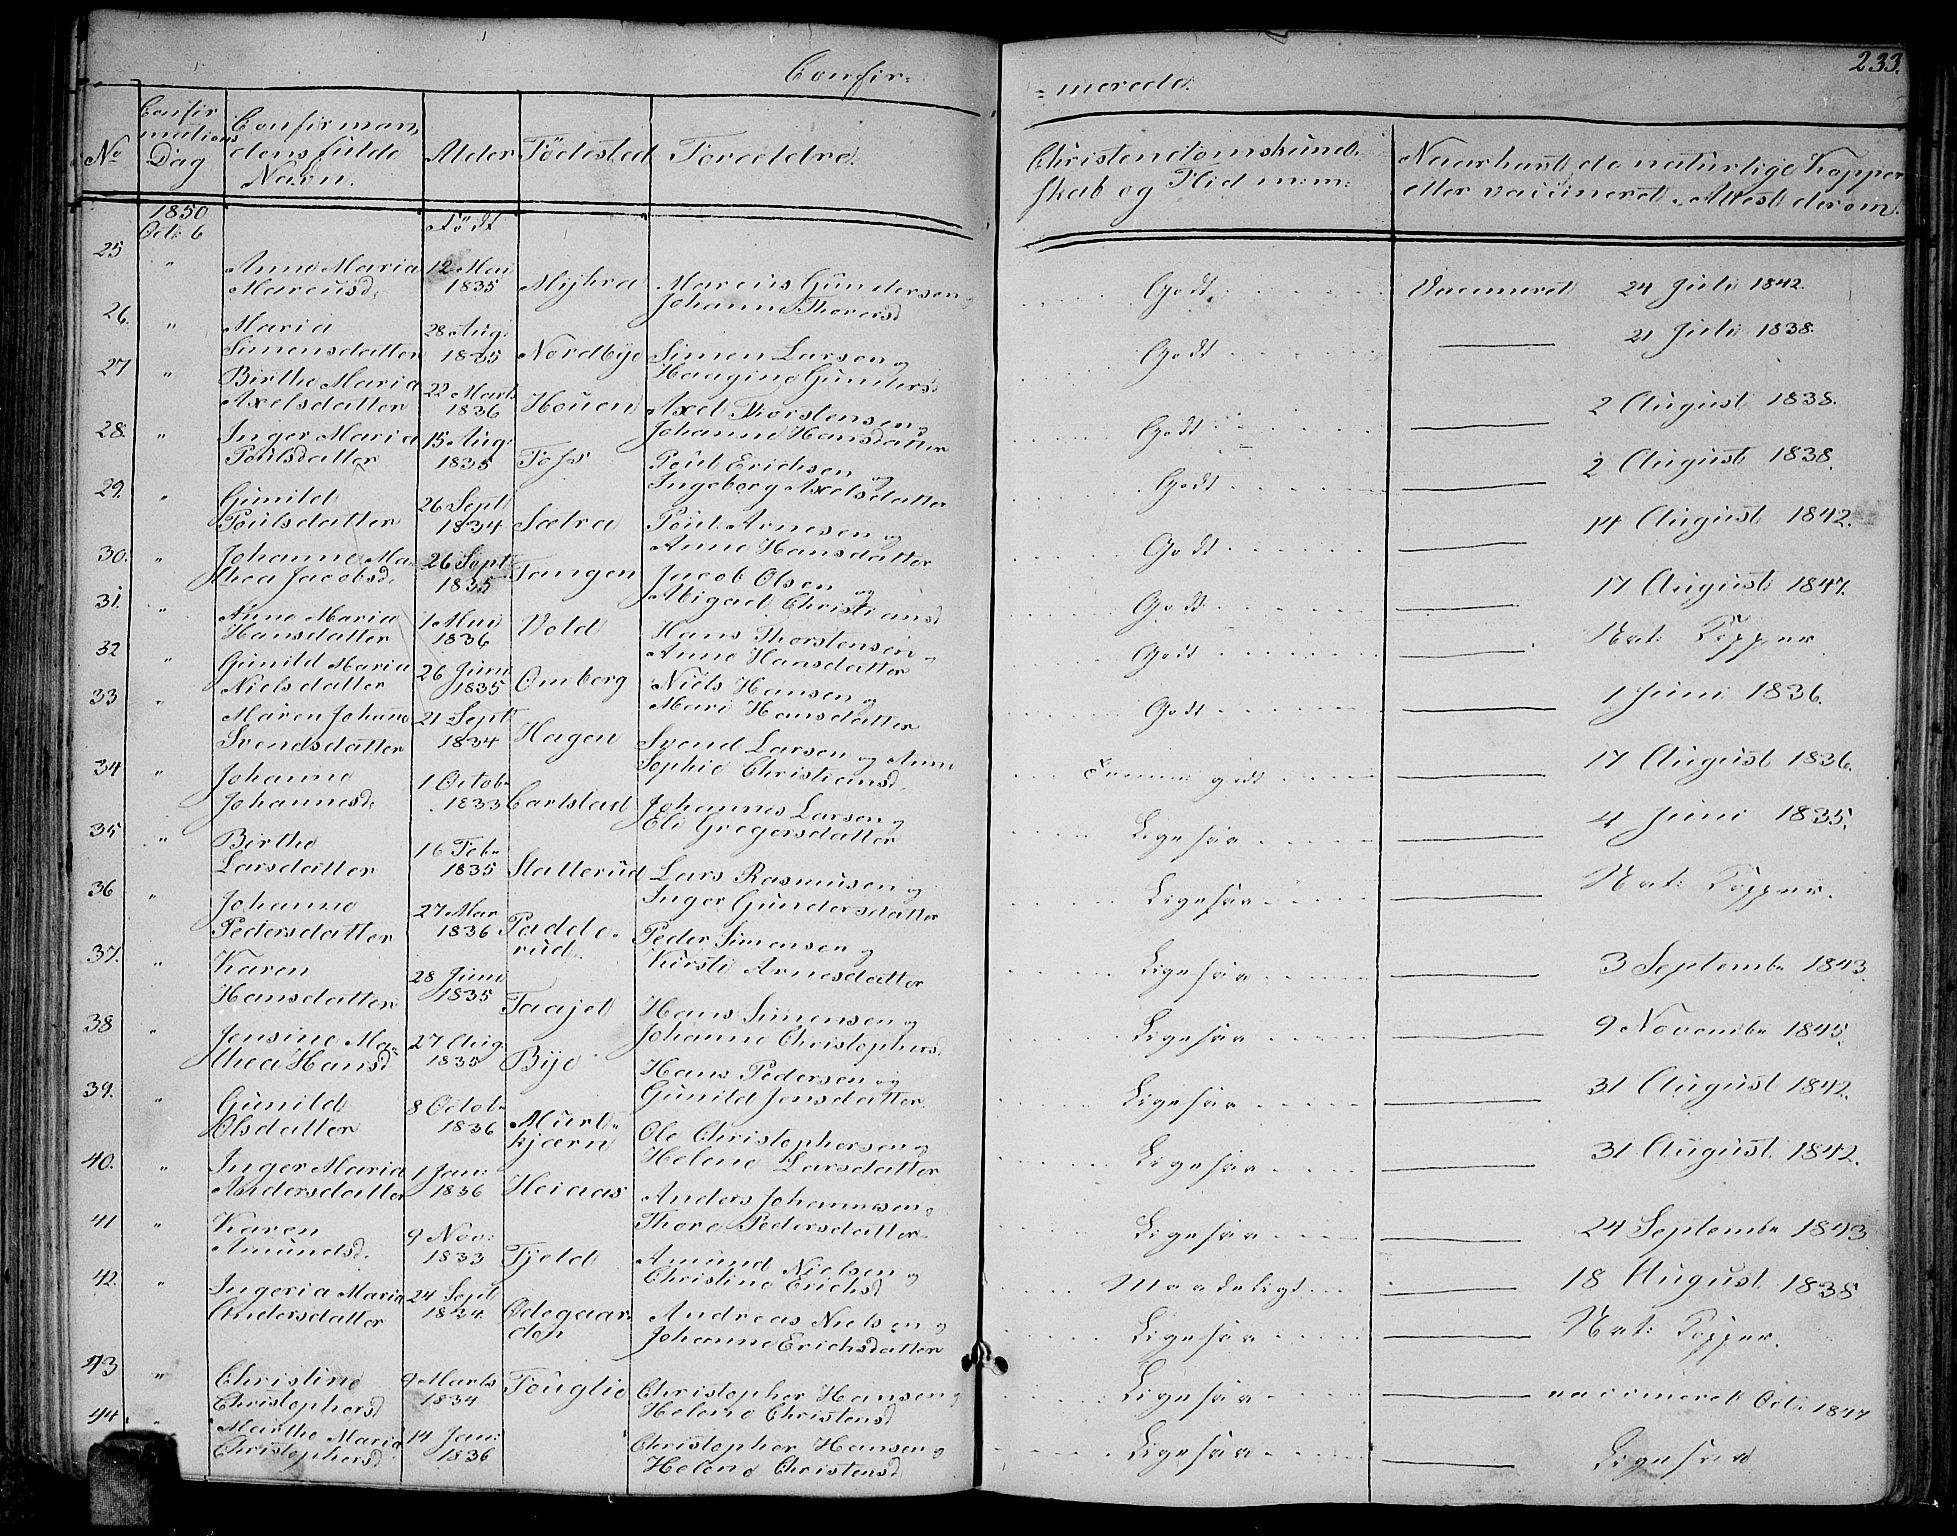 Confir=
=merede.
233.
No
Confir
mations
Dag
Confirman,
dens fulde
Navn.
Alder
Födested
Forældre.
Christendomskund,
skab og Flid m:m:
Naar havt de naturlige Kopper
eller vaccineret. Attest derom.
1850
Oct: 6
Födt
25 " Anne Maria 12 Mai
Marcusd, 1835 Myhra Marcus Gundersen
Johanne Thorersd
Godt Vaccineret 24 Juli 1842.
26. " Maria 28 Aug:
Simensdatter 1835 Nordbye Simen Larsen og
Haagine Gundersd
Godt 21 Juli 1838.
27 " Birthe Maria 22 Marts
Axelsdatter 1836 Houen Axel Thorstensen og
Johanne Hansdatter
Godt 2 August 1838.
28. " Inger Maria 15 Aug:
Poulsdatter 1835 Foss Poul Erichsen og
Ingeborg Axelsdatter
Godt 2 August 1838.
29. " Gunild 26 Sept
Poulsdatter 1834 Sætra Poul Arnesen og
Anne Hansdatter
Godt 14 August 1842.
30. " Johanne Ma- 26 Sept
thea Jacobsd, 1835 Tangen Jacob Olsen og
Abigael Christiansd
Godt 17 August 1847.
31. " Anne Maria 1 Mai
Hansdatter 1836 Vold Hans Thorstensen og
Anne Hansdatter
Godt Nat: Kopper.
32 " Gunild Maria 26 Juni
Nielsdatter 1835 Omberg Niels Hansen og
Mari Hansdatter
Godt 1 Juni 1836.
33 " Maren Johanne 21 Sept
Svendsdatter 1834 Hagen Svend Larsen og Anne
Sophie Christiansd,
godt 17 August 1836.
34 " Johanne 1 Octob:
Johannesd, 1833 Carlstad Johannes Larsen og
Eli Gregersdatter
Ligesaa 4 Juni 1835.
35 " Birthe 16 Feb:
Larsdatter 1835 Statterud Lars Rasmusen og
Inger Gundersdatter
Ligesaa Nat: Kopper.
36 " Johanne 27 Mar
Pedersdatter 1836 Padde-
rud. Peder Simensen og
Kirsti Arnesdatter
Ligesaa 3 Septembr 1843.
37. " Karen 28 Juni
Hansdatter 1835 Taajet Hans Simensen og
Johanne Christophersd
Ligesaa 9 Novembr 1845.
38 " Jensine Ma- 27 Aug:
thea Hansd 1835 Bye Hans Pedersen og
Gunild Jensdatter
Ligesaa 31 August 1842.
39. " Gunild 8 Octob:
Olsdatter 1836 Murt-
kjærn Ole Christophersen og
Helene Larsdatter
Ligesaa 31 August 1842.
40. " Inger Maria 1 Jan:
Andersdatter 1836 Heiaas Anders Johannesen og
Thore Pedersdatter
Ligesaa 24 Septembr 1843
41 " Karen 9 Nov:
Amundsd. 1833 Fjeld Amund Nielsen og
Christine Erichsd
Maadeligt 18 August 1838
42. " Ingeria Maria 24 Sept
Andersdatter 1834. Ødegaar-
den Andreas Nielsen og
Johanne Erichsdatter
Ligesaa Nat: Kopper.
43 " Christine 9 Marts
Christophersd 1834 Fouglie Christopher Hansen og
Helene Christensd
Ligesaa vaccineret Oct. 1847
44. " Marthe Maria 14 Jan:
Christophersd. 1836 Christopher Hansen og
Helene Christensd
Ligesaa Ligesaa